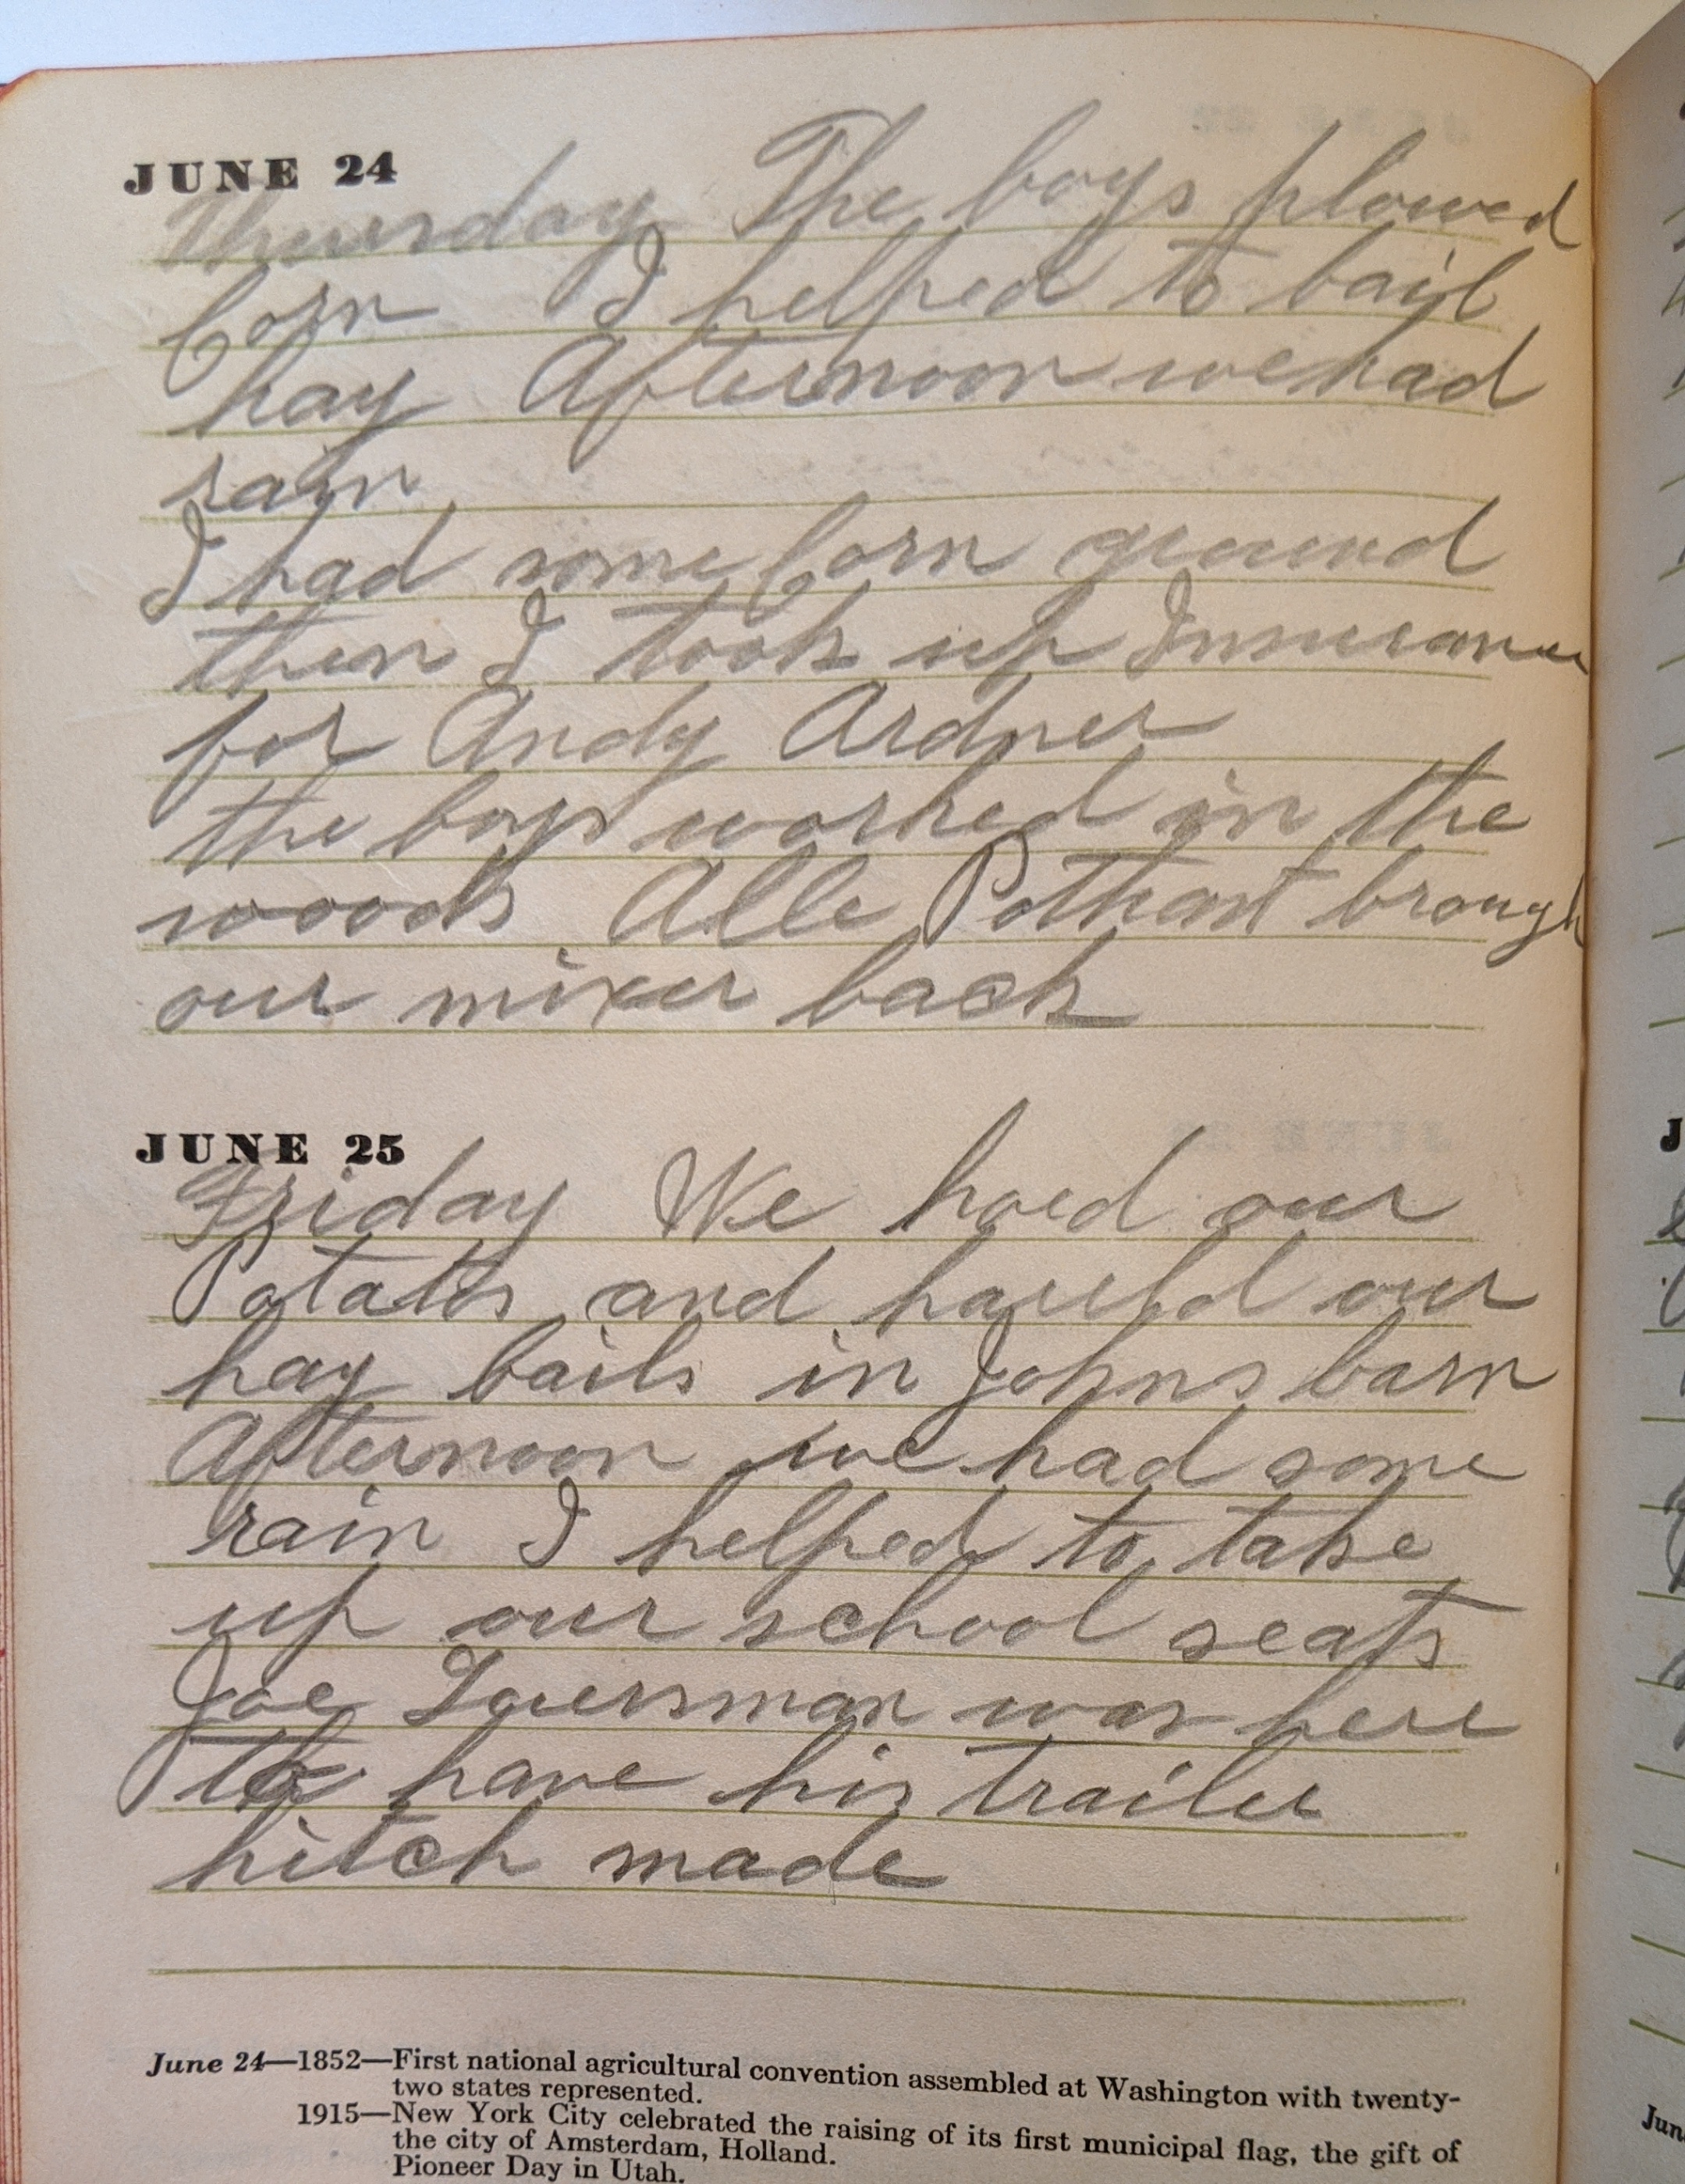 JUNE 24
Thursday The boys plowed
Corn I helped to bail
hay Afternoon we had
rain
I had some Corn ground
then I took up Insurance
for Andy Ardner
the boys worked in the
woods Alle Pothast brough
our mixer back
JUNE 25
Friday We hoed our
Potatos and hauld our
hay bails in Johns barn
Afternoon we had some
rain I helped to take
up our school seats
Joe was here
to have his trailer
hitch made
June 24—1852—First national agricultural convention assembled at Washington with twenty-
two states represented.
1915—New York City celebrated the raising of its first municipal flag, the gift of
the city of Amsterdam, Holland.
Pioneer Day in Utah.